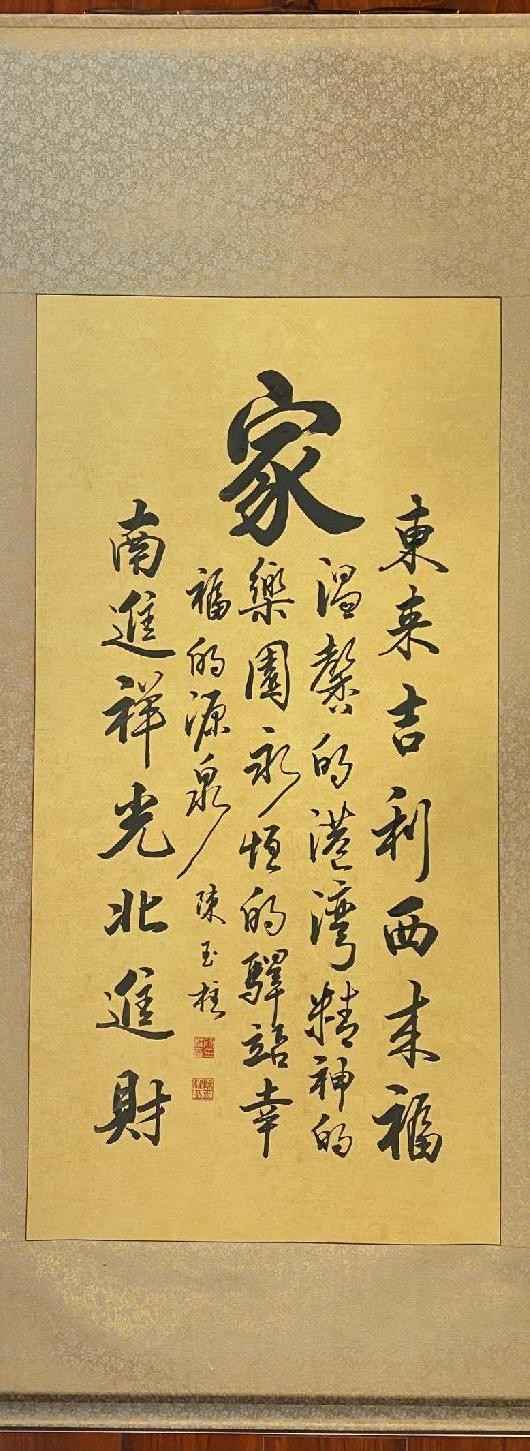 家
東来吉利西来福
温馨的港湾精神的
樂園永恒的驛站幸
福的源泉
陳玉柱
南進祥光北進財